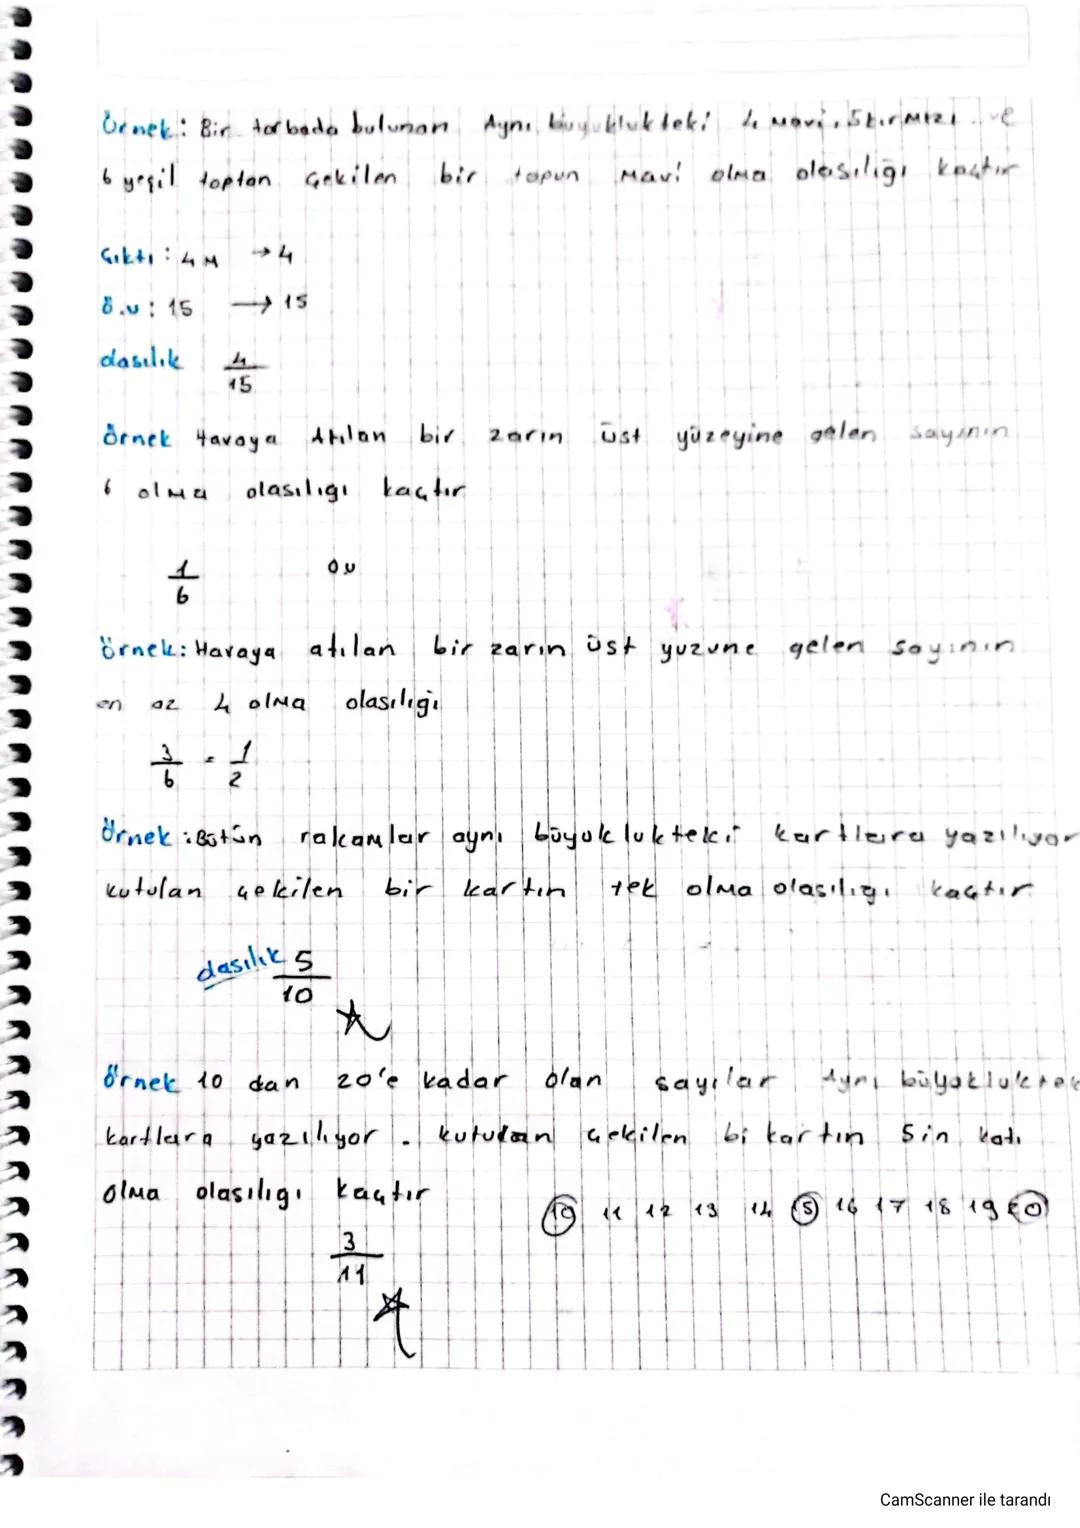 Örnek: Bir torbada bulunan Aynı büyüklükteki 4 mavi, 5 kırmızı ve
6 yeşil toptan Çekilen bir topun Mavi olma olasılığı kaçtır
Çıktı : 4 M → 4
ö.u : 15 → 15
olasılık 4/15
örnek Havaya Atılan bir zarın üst yüzeyine gelen sayının
6 olma olasılığı kaçtır
1/6 öu
örnek: Havaya atılan bir zarın üst yuzune gelen sayının
en az 4 olma olasılığı
3/6 = 1/2
Örnek : Bütün rakamlar aynı büyüklükteki kartlara yazılıyor
kutulan çekilen bir kartın tek olma olasılığı kaçtır
olasılık 5/10
örnek 10 dan 20'e kadar olan sayılar Aynı büyüklüktek
kartlara yazılıyor. kutudan Çekilen bi kartın 5in katı
olma olasılığı kaçtır
10 11 12 13 14 15 16 17 18 19 20
3/11
CamScanner ile tarandı